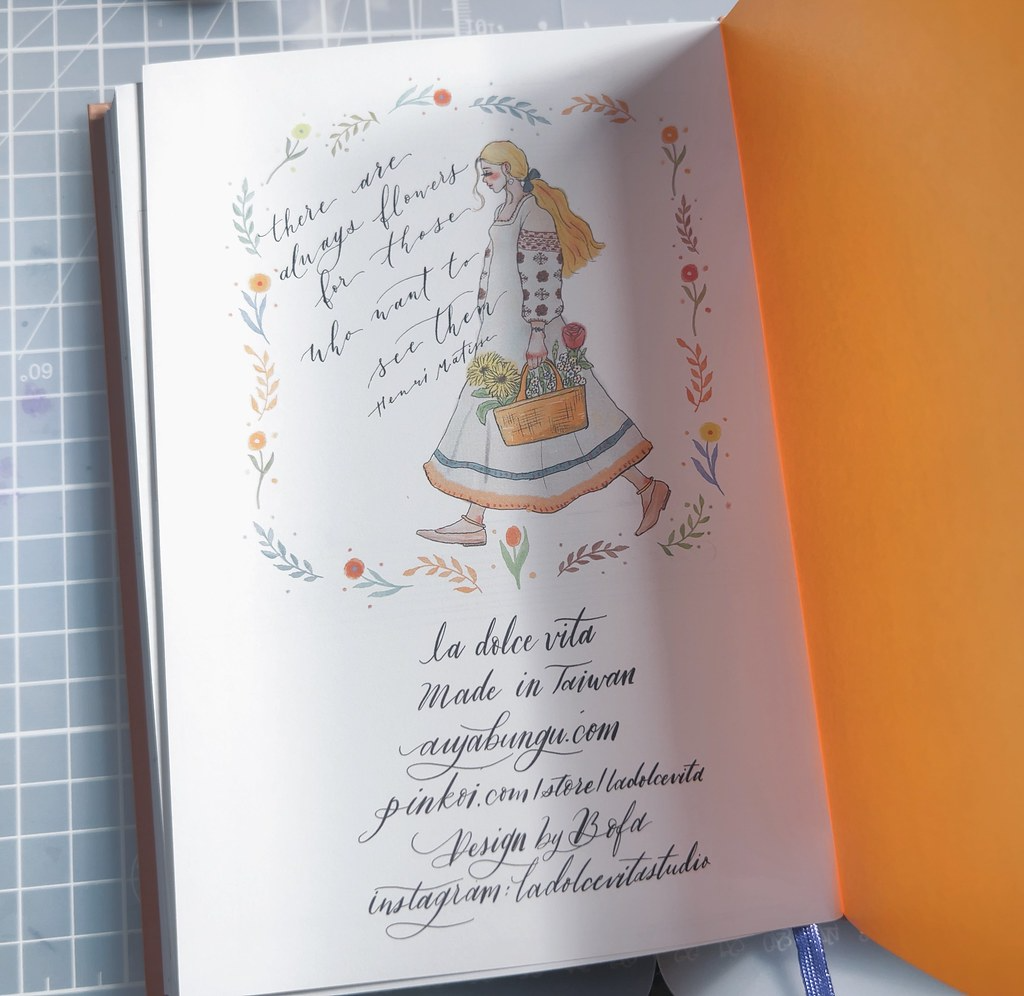 there are
always flowers
for those
who want to
see them
Henri Matisse
la dolce vita
Made in Taiwan
aiyabungu.com
pinkoi.com/store/ladolcevita
Design by Bofa
instagram: ladolcevitastudio
.09